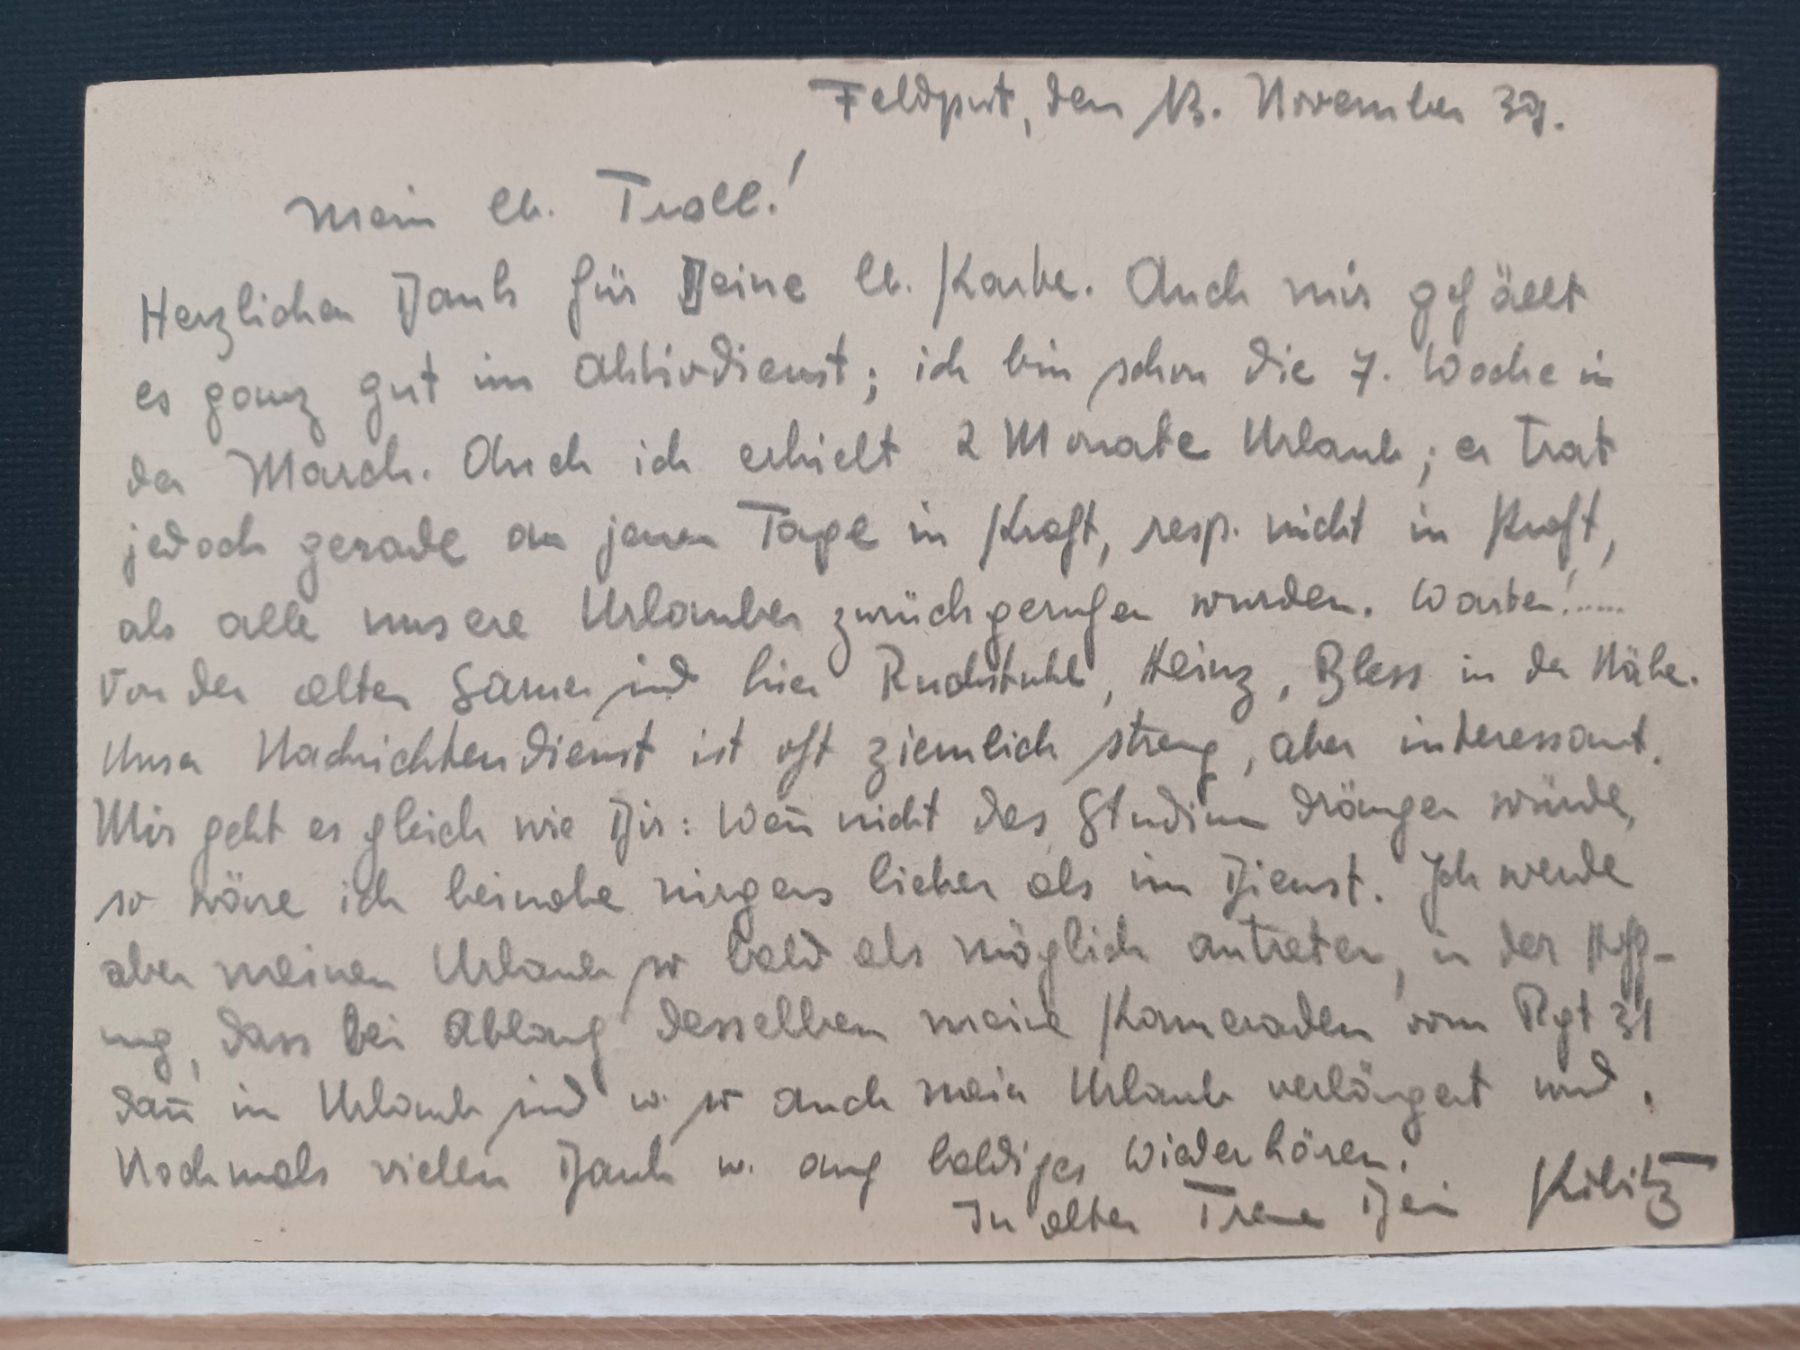 Feldpost, den 13. November 39.
Mein lb. Troll!
Herzlichen Dank für Deine lb. Karte. Auch mir gefällt
es ganz gut im Aktivdienst; ich bin schon die 7. Woche in
der March. Auch ich erhielt 2 Monate Urlaub; er trat
jedoch gerade an jenem Tage in Kraft, resp. nicht in Kraft,
als alle unsere Urlauber zurückgerufen wurden. Warten!.....
Von der alten Garde sind hier Ruckstuhl, Heinz, Bless in der Nähe.
Unser Nachrichtendienst ist oft ziemlich streng, aber interessant.
Mir geht es gleich wie Dir: Wen̄ nicht das Studium drängen würde,
so wäre ich beinahe nirgens lieber als im Dienst. Ich werde
aber meinen Urlaub so bald als möglich antreten, in der Hoff-
ung, dass bei Ablauf desselben meine Kameraden vom Rgt 31
dan̄ im Urlaub sind u. so auch mein Urlaub verlängert wird.
Nochmals vielen Dank u. auf baldiges Wiederhören.
In alter Treue Dein Kibitz